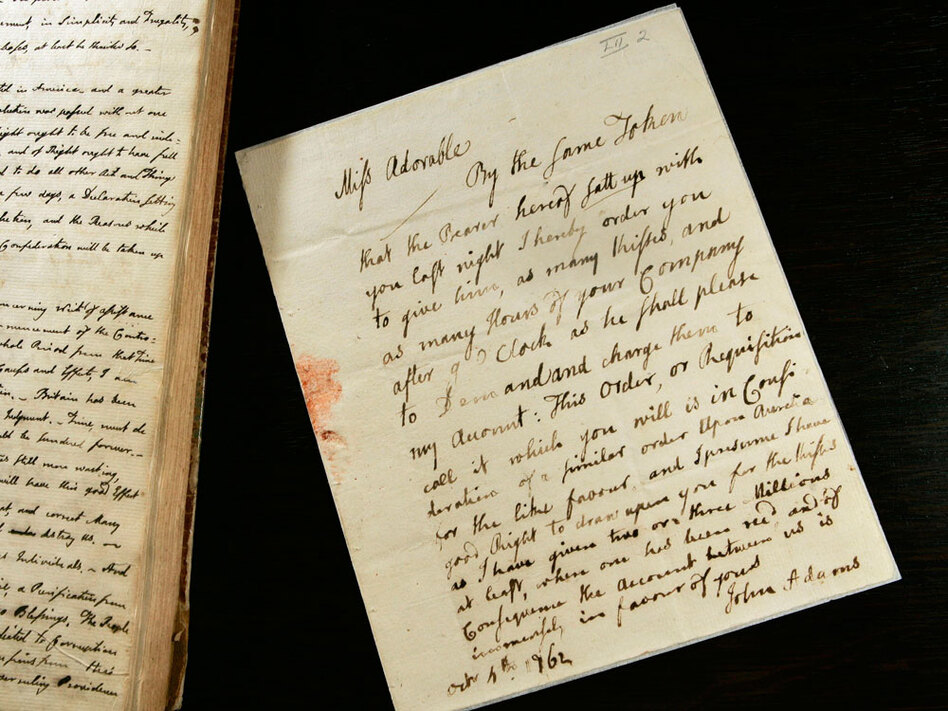 ment, in Simplicity and Frugality,
at least he thinks so. —
in America — and a greater
was passed without one
ought to be free and inde-
and of Right ought to have full
to do all other Act and Things
a few days, a Declaration setting
and the Reasons which
Confederation will be taken up
concerning Writs of assistance
mencement of the Contro-
whole Period from that Time
Causes and Effect, I am
— Britain has been
Judgment. — Time must de
still more
will have this good Effect
and correct Many
destroy us. —
Individuals. — And
a Purification from
Blessings. The People
Corruption
Providence
LII 2
Miss Adorable
By the same Token
that the Bearer hereof satt up with
you last night I hereby order you
to give him, as many Kisses, and
as many Hours of your Company
after 9 O Clock as he shall please
to Demand and charge them to
my Account: This Order, or Requisition
call it which you will is in Consi-
deration of a similar order Upon Aurelia
for the like favour, and I presume I have
good Right to draw upon you for the Kisses
as I have given two or three Millions
at least, when one has been recd, and of
Consequence the Account between us is
immensely in favour of yours
John Adams
octr 4th. 1762